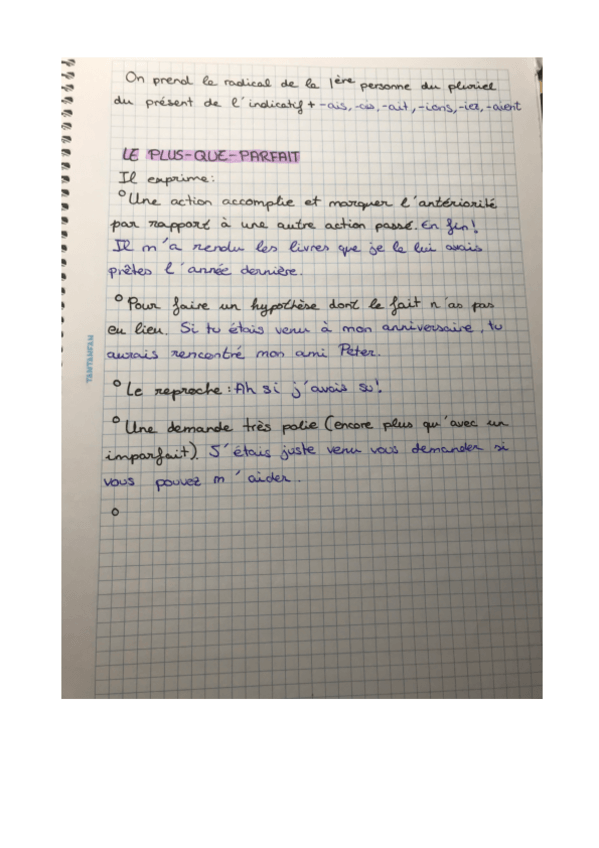 On prend le radical de la 1ère personne du pluriel
du présent de l'indicatif + -ais, -ais, -ait, -ions, -iez, -aient
LE PLUS-QUE-PARFAIT
Il exprime:
° Une action accomplie et marquer l'antériorité
par rapport à une autre action passé. En fin!
Il m'a rendu les livres que je le lui avais
prêtes l'année dernière.
° Pour faire un hypothèse dont le fait n'as pas
eu lieu. Si tu étais venu à mon anniversaire, tu
aurais rencontré mon ami Peter.
° Le reproche: Ah si j'avais su!
° Une demande très polie (encore plus qu'avec un
imparfait). J'étais juste venu vous demander si
vous pouvez m'aider.
°
TANTANFAN